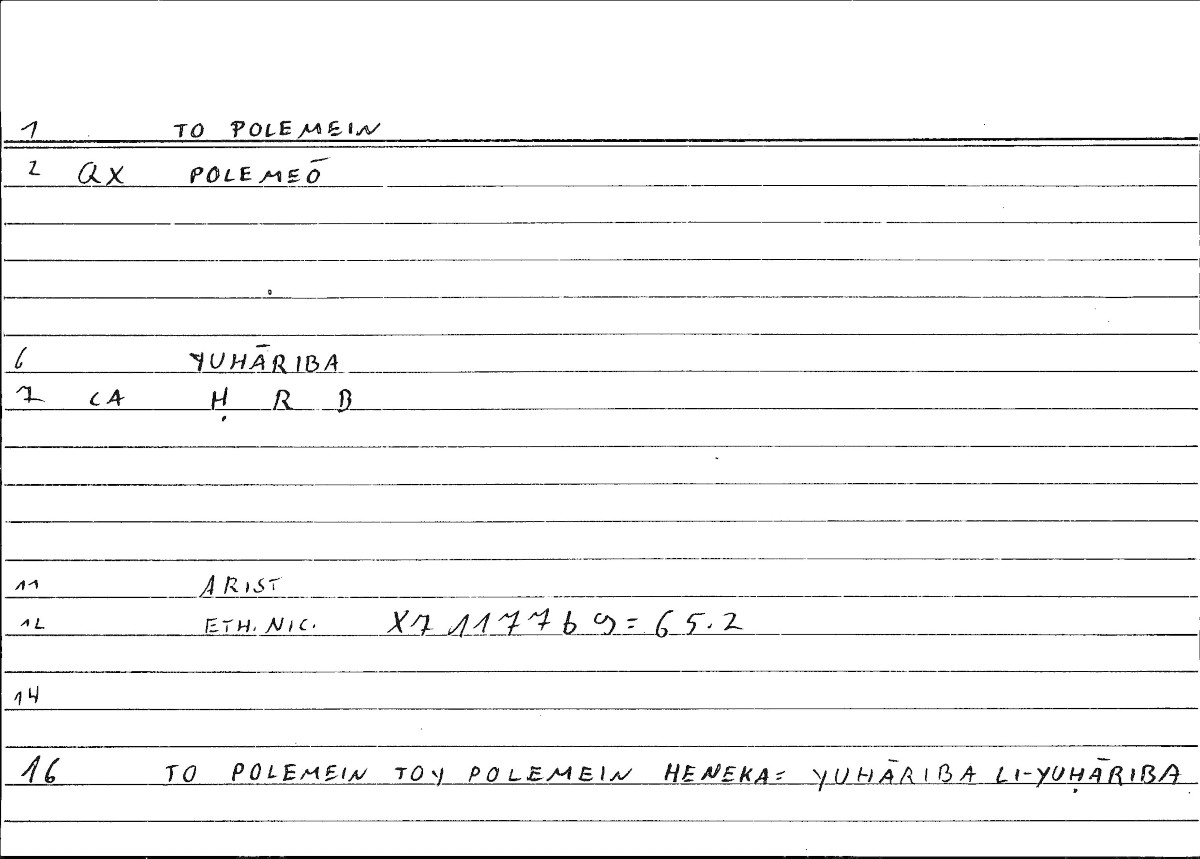 1 TO POLEMEIN
2 QX POLEMEŌ
6 YUHĀRIBA
7 CA Ḥ R B
11 ARIST
12 ETH. NIC. X7 1177 b 9 = 65.2
14
16 TO POLEMEIN TOY POLEMEIN HENEKA = YUHĀRIBA LI-YUḤĀRIBA